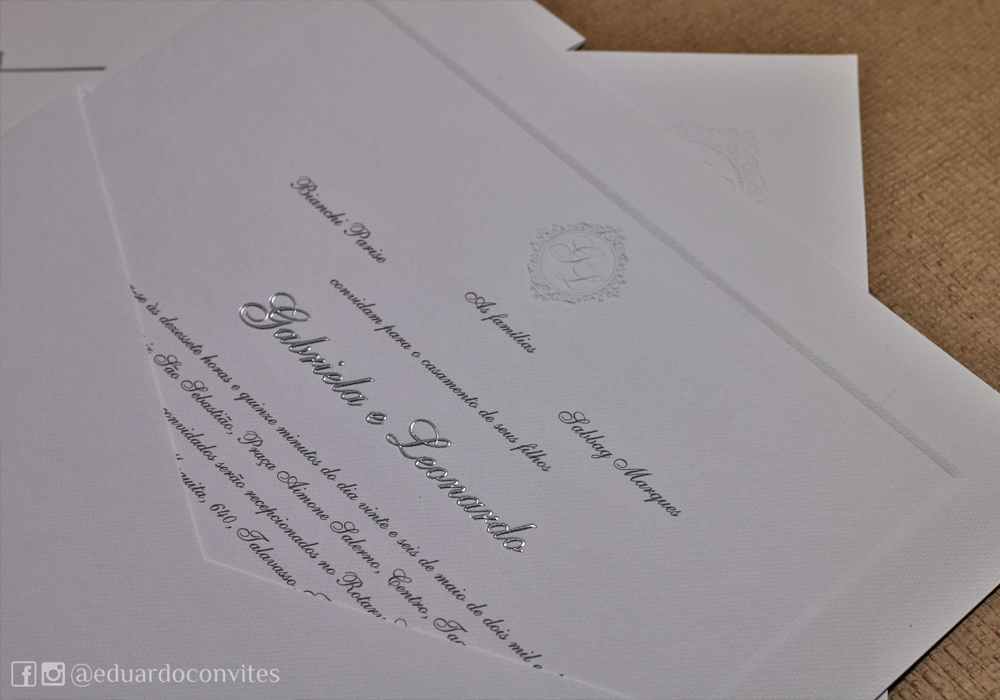 As famílias
Bianchi Parise Sabbag Marques
convidam para o casamento de seus filhos
Gabriela e Leonardo
às dezessete horas e quinze minutos do dia vinte e seis de maio de dois mil e
São Sebastião, Praça Aimone Salerno, Centro,
convidados serão recepcionados no
640,
@eduardoconvites